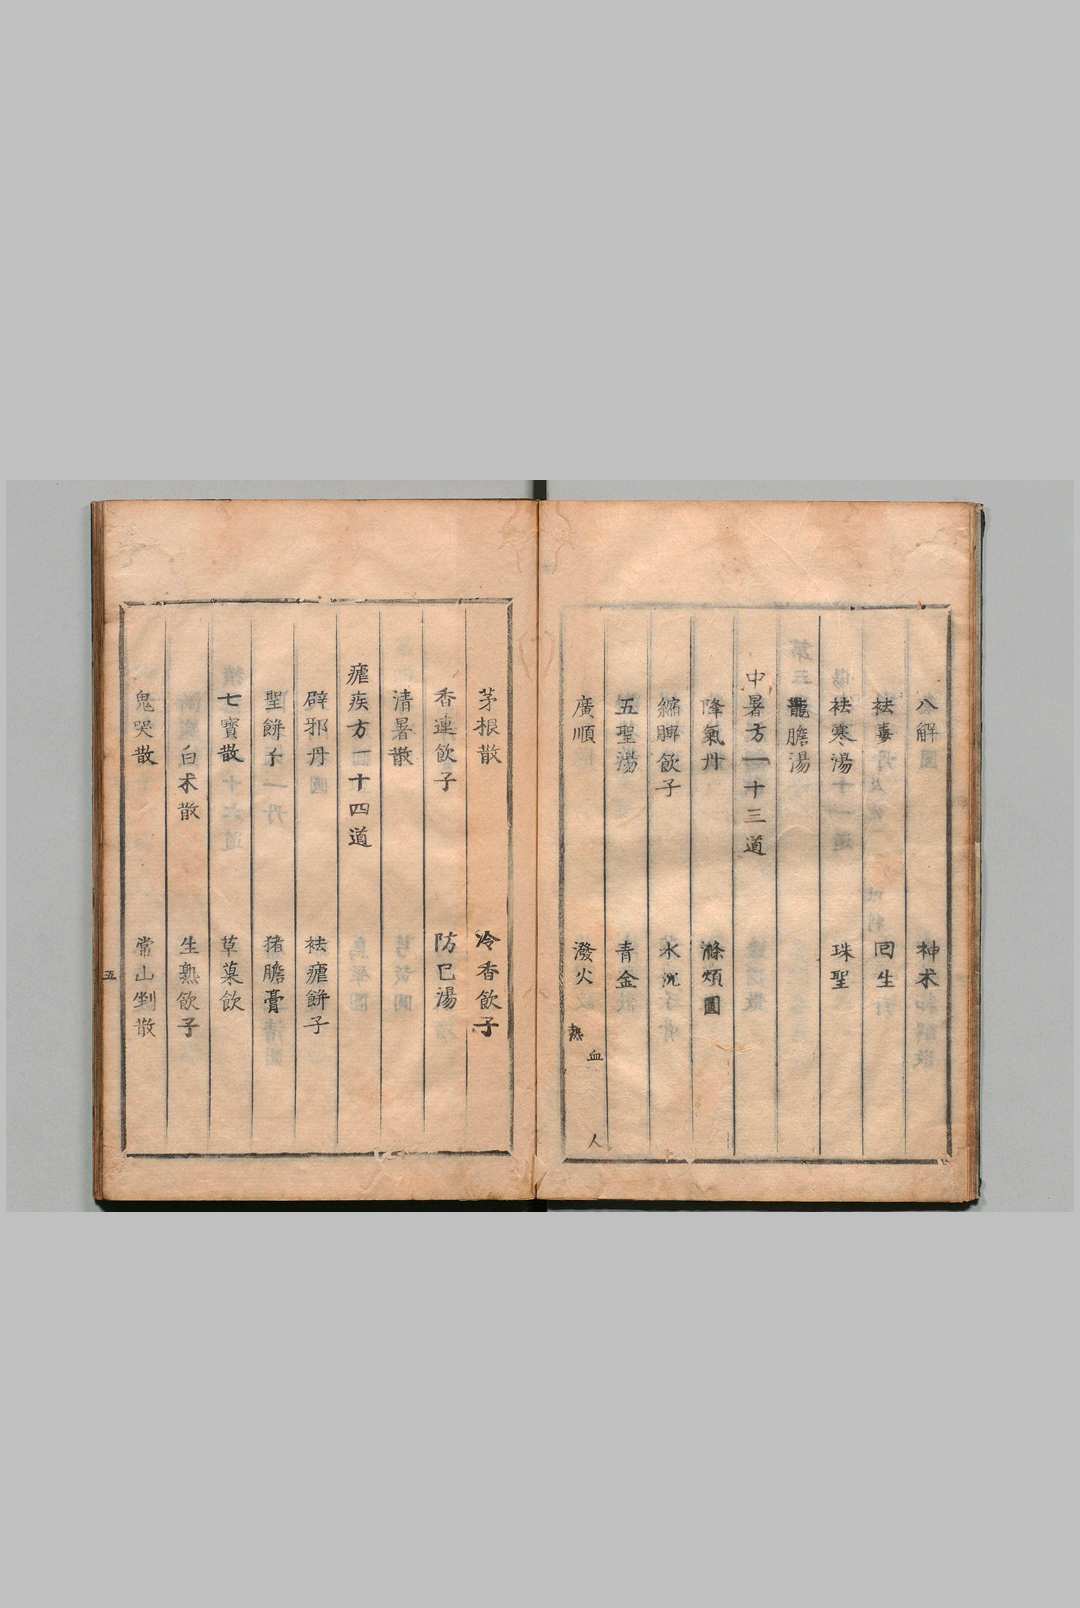 八解　神术
祛毒　回生
祛寒湯　珠聖
龍膽湯
中暑方一十三道
降氣丹　滌煩圓
縮脾飲子　水沉
五聖湯　青金
廣順　潑火
熱
血
人
茅根散　冷香飲子
香連飲子　防已湯
清暑散
瘧疾方一十四道
辟邪丹　祛瘧餅子
聖餅子　猪膽膏
七寳散　草菓飲
白术散　生熟飲子
鬼哭散　常山剉散
五